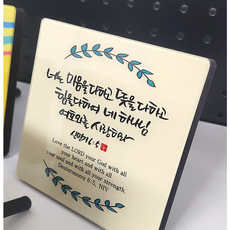 너는 마음을 다하고 뜻을 다하고
힘을 다하여 네 하나님
여호와를 사랑하라
신명기 6:5
Love the LORD your God with all
your heart and with all
your soul and with all your strength.
Deuteronomy 6:5, NIV